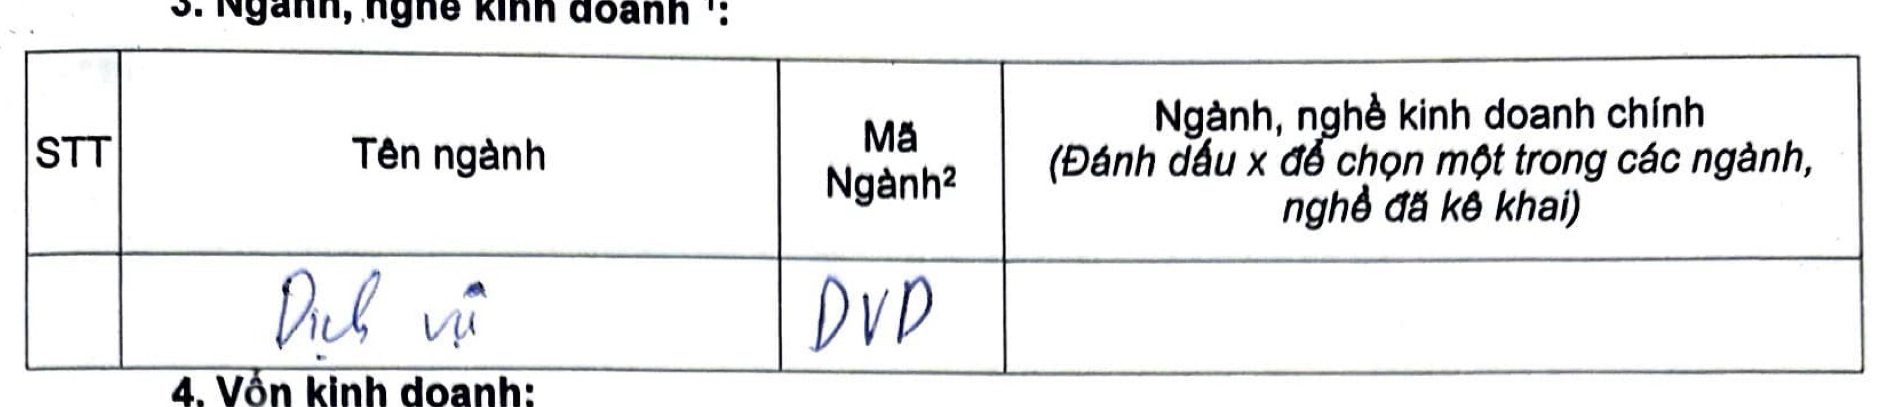 3. Ngành, nghề kinh doanh ¹:
STT
Tên ngành
Mã
Ngành²
Ngành, nghề kinh doanh chính
(Đánh dấu x để chọn một trong các ngành,
nghề đã kê khai)
Dịch vụ
DVD
4. Vốn kinh doanh: